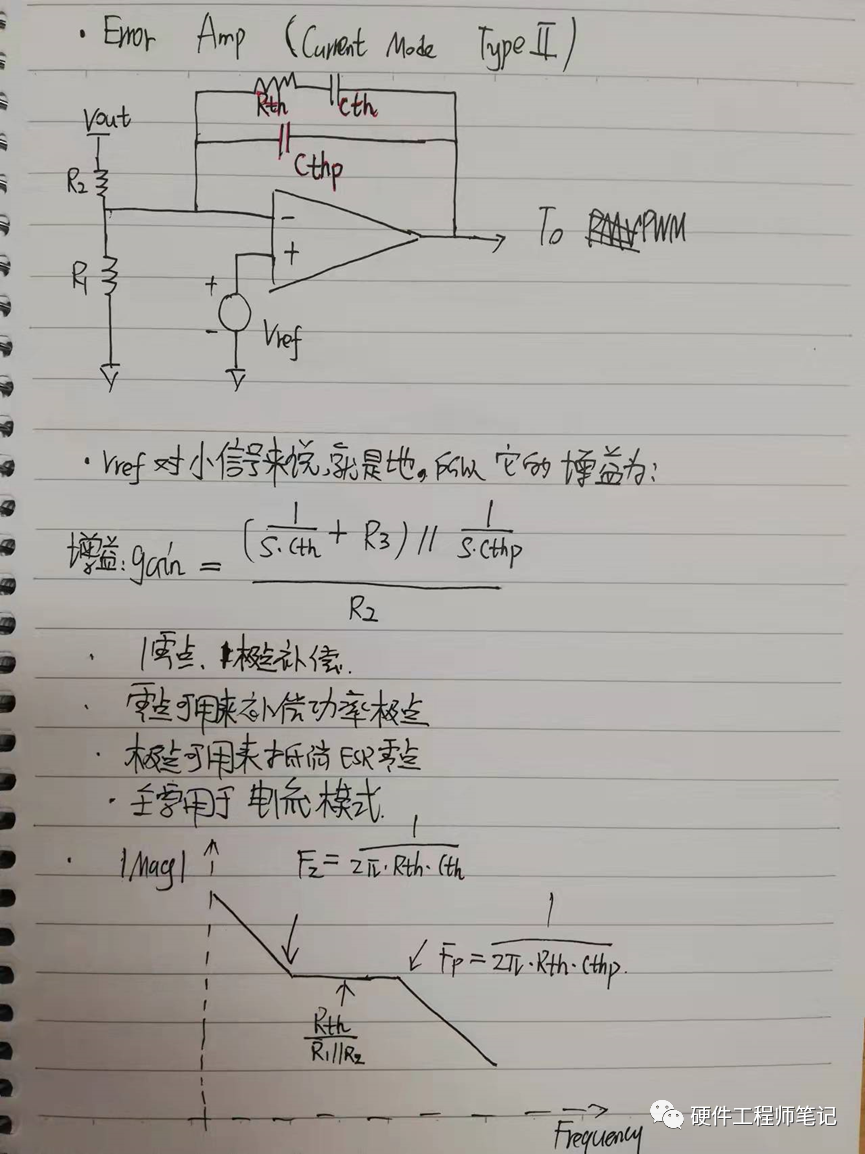 · Error Amp (Current Mode Type II)
Rth Cth
Vout
Cthp
R2
-
+
To PWM
R1
+
-
Vref
· Vref 对小信号来说,就是地。所以 它的 增益为:
增益: gain = ((1/(S·Cth) + R3) // 1/(S·Cthp)) / R2
· 1零点、1极点补偿.
· 零点可用来补偿功率极点
· 极点可用来抵消 ESR 零点
· 主要用于 电流模式.
· |Mag| Fz = 1/(2π·Rth·Cth)
Fp = 1/(2π·Rth·Cthp).
Rth/(R1//R2)
Frequency
硬件工程师笔记